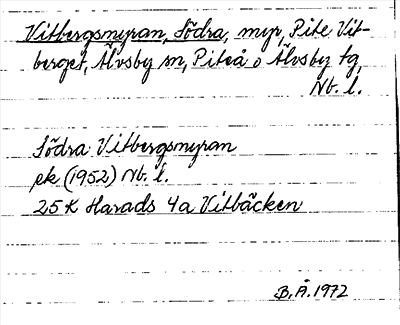 Vitbergsmyran, Södra, myr, Pite Vit-
berget, Älvsby sn, Piteå o Älvsby tg,
Nb. l.
Södra Vitbergsmyran
ek (1952) Nb. l.
25 K Harads 4a Vitbäcken
B.Å. 1972